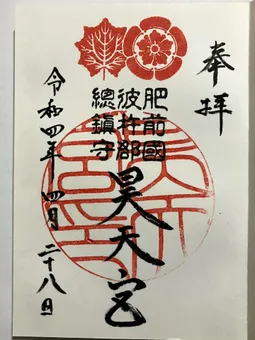 奉拝
肥前國
彼杵郡
總鎮守
昊天宮
令和四年 四月 二十八日